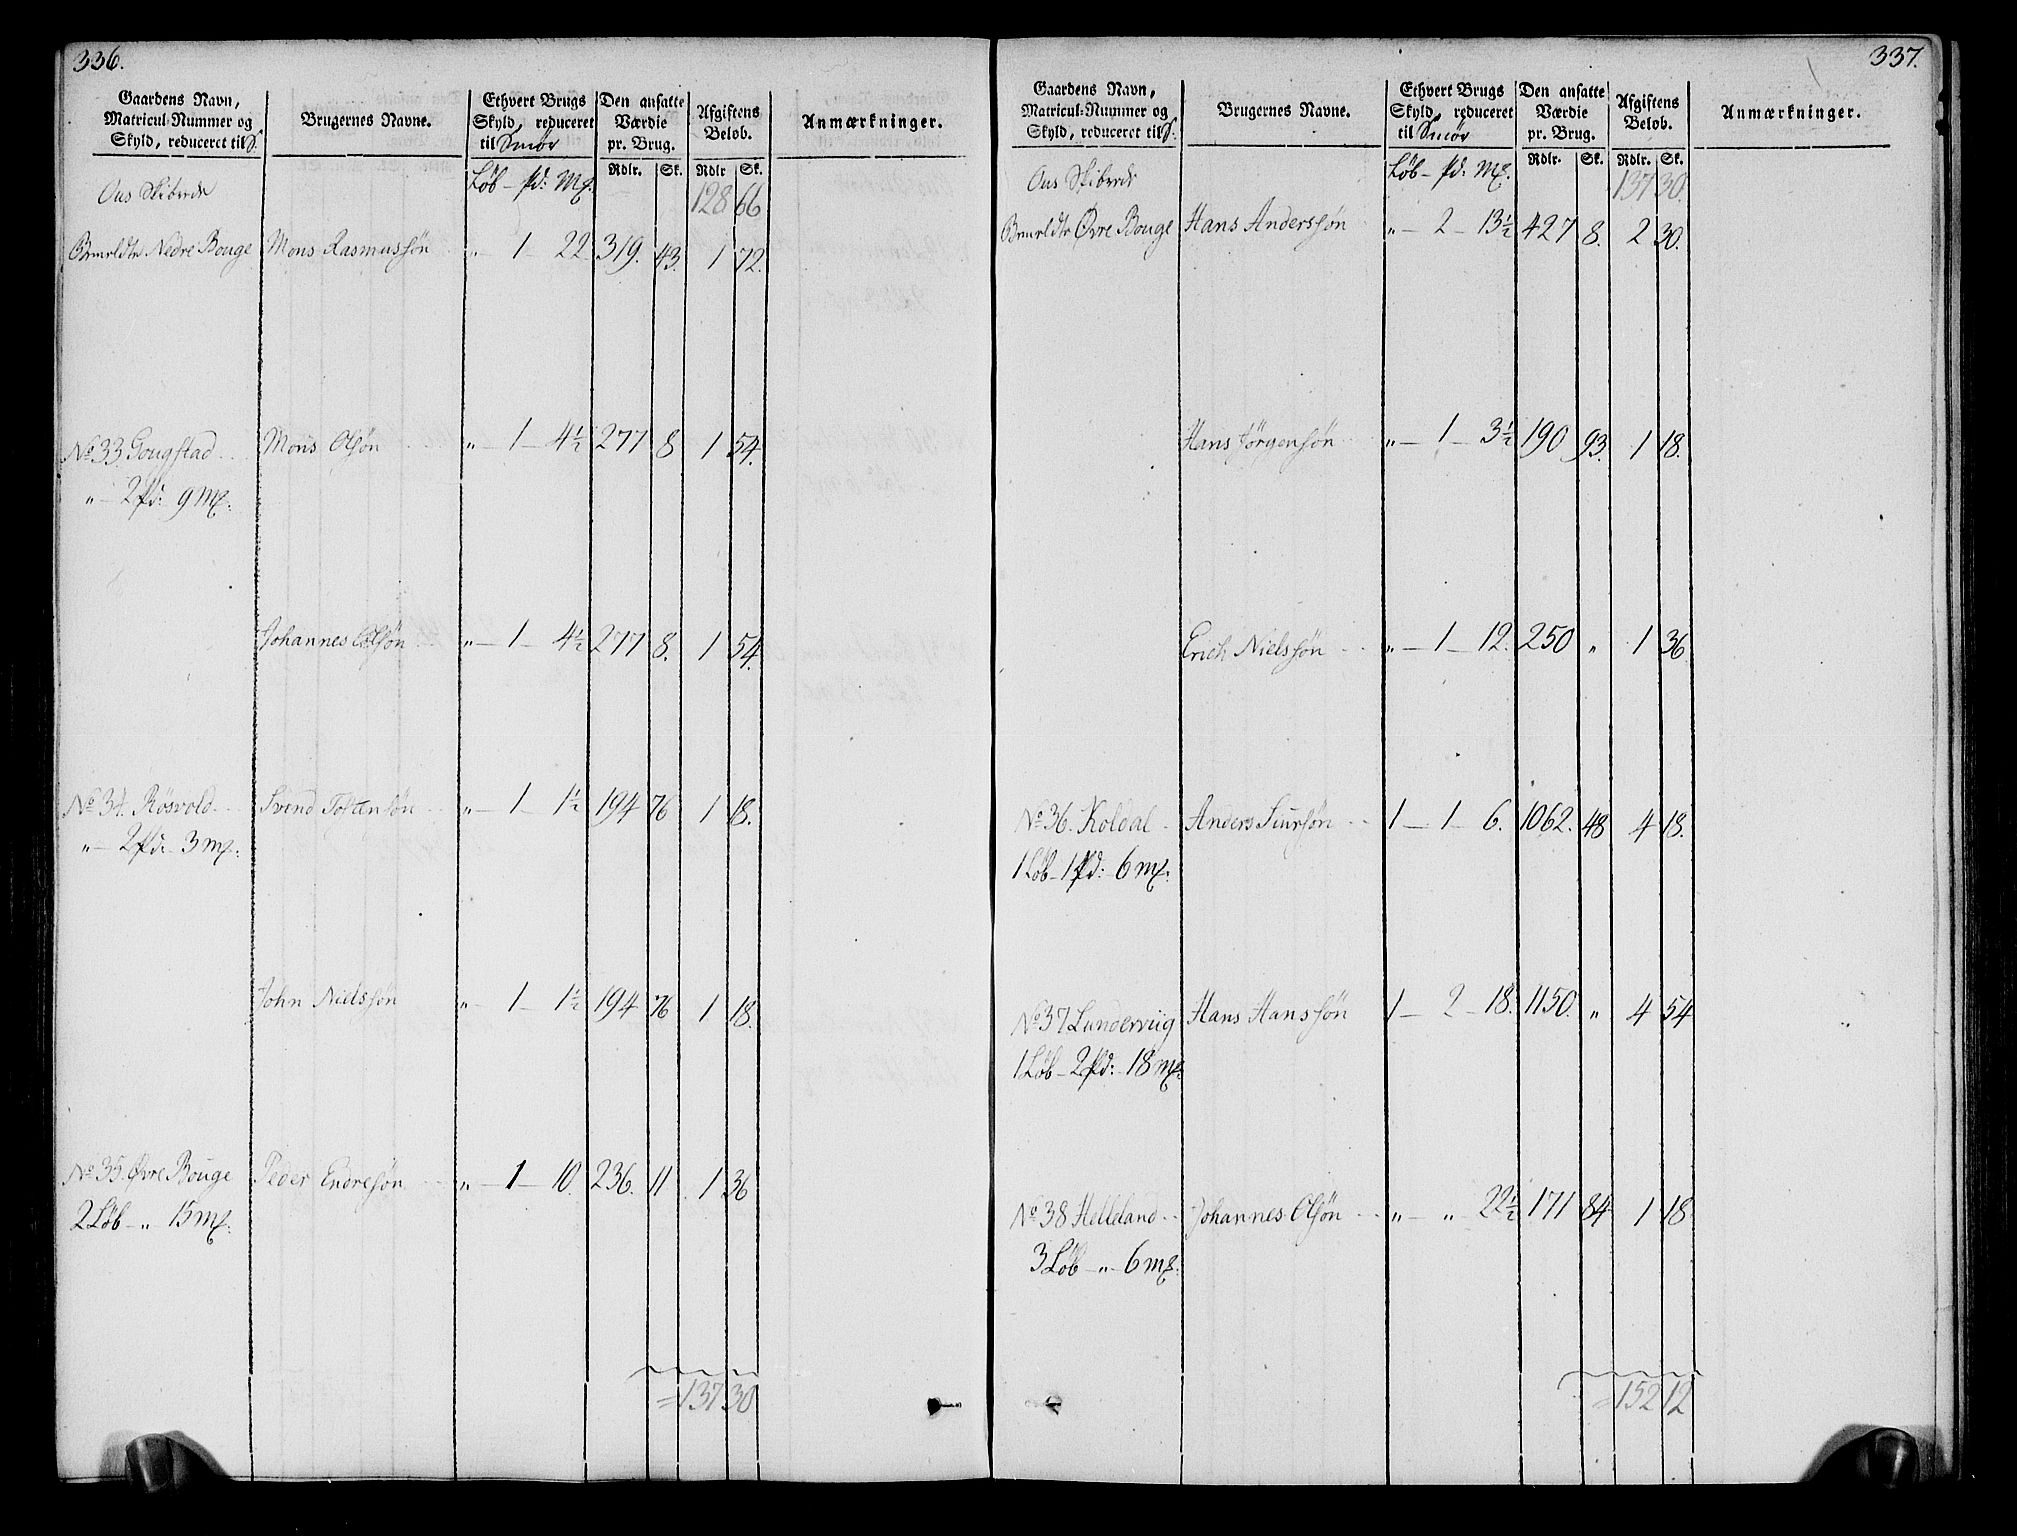 336.
Gaardens Navn, Matricul-Nummer og Skyld, reduceret til S. | Brugernes Navne. | Ethvert Brugs Skyld, reduceret til Smør | Den ansatte Værdie pr. Brug. | Afgiftens Beløb. | Anmærkninger.
Løb – pd: Mk. | Rdlr. | Sk. | Rdlr | Sk.
Ous Skibrede 128 66
Bemeldte Nedre Bouge Mons Rasmussøn „ – 1 – 22. 319. 43. 1 72.
No 33 Gougstad Mons Olsøn „ – 1 – 4½ 277 8 1 54.
„ – 2 pd: 9 Mk.
Johannes Olsøn „ – 1 – 4½ 277 8. 1 54.
No 34. Røsvold Svend Tostensøn „ – 1 – 1½ 194 76 1 18.
„ – 2 pd: 3 mk.
John Nielssøn „ – 1 – 1½ 194 76 1 18.
No 35 Øvre Bouge Peder Endresøn „ – 1 – 10. 236. 11 1 36
2 Løb – „ 15 mk.
= 137 30
337.
Gaardens Navn, Matricul-Nummer og Skyld, reduceret til S. | Brugernes Navne. | Ethvert Brugs Skyld, reduceret til Smør | Den ansatte Værdie pr. Brug. | Afgiftens Beløb. | Anmærkninger.
Løb – pd: Mk. | Rdlr. | Sk. | Rdlr. | Sk.
Ous Skibrede 137 30.
Bemeldte Øvre Bouge Hans Anderssøn „ – 2 – 13½ 427 8. 2 30.
Hans Jørgensøn „ – 1 – 3½ 190 93. 1 18.
Erich Nielssøn „ – 1 – 12. 250 „ 1 36
No 36. Koldal Anders Siursøn 1 – 1 – 6. 1062. 48 4 18.
1 Løb – 1 pd: 6 mk.
No 37 Lunderviig Hans Hanssøn 1 – 2 – 18. 1150. „ 4 54
1 Løb – 2 pd: 18 mk.
No 38 Helleland Johannes Olsøn „ – „ 22½ 171 84 1 18
3 Løb – „ – 6 mk.
= 152 12